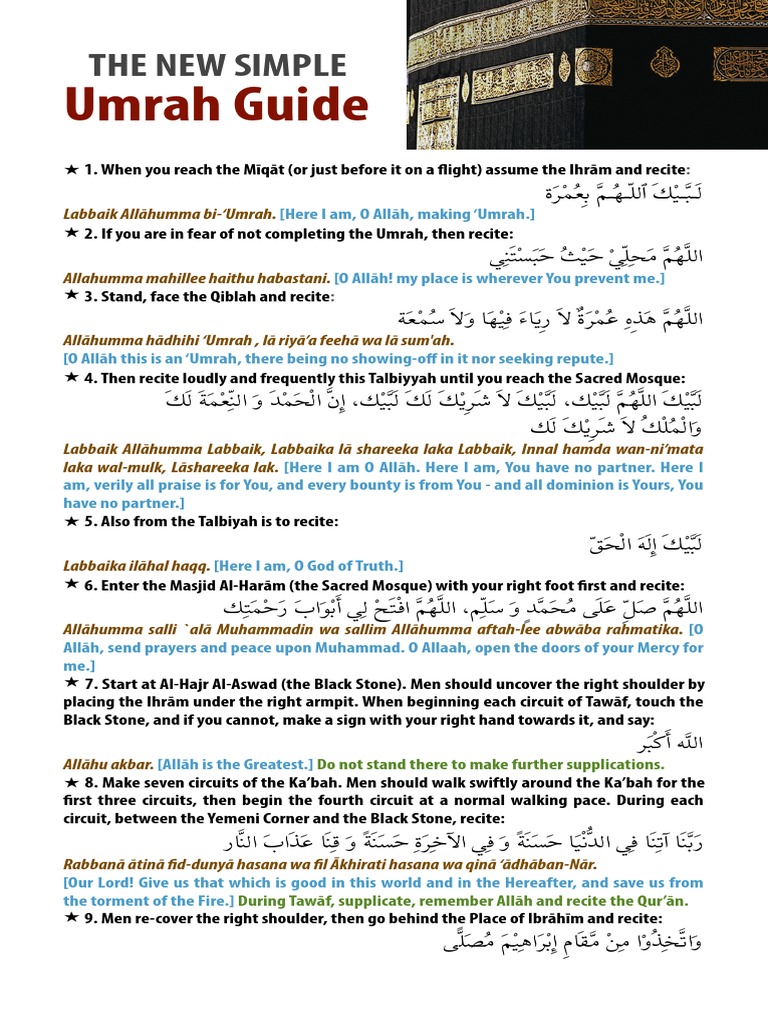 THE NEW SIMPLE
Umrah Guide
★ 1. When you reach the Mīqāt (or just before it on a flight) assume the Ihrām and recite:
لَـبَّـيْكَ ٱللّـهُـمَّ بِعُمْرَة
Labbaik Allāhumma bi-‘Umrah. [Here I am, O Allāh, making ‘Umrah.]
★ 2. If you are in fear of not completing the Umrah, then recite:
اللَّهُمَّ مَحِلِّيْ حَيْثُ حَبَسْتَنِي
Allahumma mahillee haithu habastani. [O Allāh! my place is wherever You prevent me.]
★ 3. Stand, face the Qiblah and recite:
اللَّهُمَّ هَذِهِ عُمْرَةٌ لاَ رِيَاءَ فِيْهَا وَلاَ سُمْعَة
Allāhumma hādhihi ‘Umrah , lā riyā’a feehā wa lā sum'ah.
[O Allāh this is an ‘Umrah, there being no showing-off in it nor seeking repute.]
★ 4. Then recite loudly and frequently this Talbiyyah until you reach the Sacred Mosque:
لَبَّيْكَ اللَّهُمَّ لَبَّيْك، لَبَّيْكَ لاَ شَرِيْكَ لَكَ لَبَّيْك، إِنَّ الْحَمْدَ وَ النِّعْمَةَ لَكَ
وَالْمُلْكُ لاَ شَرِيْكَ لَك
Labbaik Allāhumma Labbaik, Labbaika lā shareeka laka Labbaik, Innal hamda wan-ni’mata
laka wal-mulk, Lāshareeka lak. [Here I am O Allāh. Here I am, You have no partner. Here I
am, verily all praise is for You, and every bounty is from You - and all dominion is Yours, You
have no partner.]
★ 5. Also from the Talbiyah is to recite:
لَبَّيْكَ إِلَهَ الْحَقّ
Labbaika ilāhal haqq. [Here I am, O God of Truth.]
★ 6. Enter the Masjid Al-Harām (the Sacred Mosque) with your right foot first and recite:
اللَّهُمَّ صَلِّ عَلَى مُحَمَّد وَ سَلِّم، اللَّهُمَّ افْتَحْ لِي أَبْوَابَ رَحْمَتِك
Allāhumma salli `alā Muhammadin wa sallim Allāhumma aftah-lee abwāba rahmatika. [O
Allāh, send prayers and peace upon Muhammad. O Allaah, open the doors of your Mercy for
me.]
★ 7. Start at Al-Hajr Al-Aswad (the Black Stone). Men should uncover the right shoulder by
placing the Ihrām under the right armpit. When beginning each circuit of Tawāf, touch the
Black Stone, and if you cannot, make a sign with your right hand towards it, and say:
اللَّه أَكْبَر
Allāhu akbar. [Allāh is the Greatest.] Do not stand there to make further supplications.
★ 8. Make seven circuits of the Ka’bah. Men should walk swiftly around the Ka’bah for the
first three circuits, then begin the fourth circuit at a normal walking pace. During each
circuit, between the Yemeni Corner and the Black Stone, recite:
رَبَّنَا آتِنَا فِي الدُّنْيَا حَسَنَةً وَ فِي الآخِرَةِ حَسَنَةً وَ قِنَا عَذَابَ النَّار
Rabbanā ātinā fid-dunyā hasana wa fil Ākhirati hasana wa qinā ‘ādhāban-Nār.
[Our Lord! Give us that which is good in this world and in the Hereafter, and save us from
the torment of the Fire.] During Tawāf, supplicate, remember Allāh and recite the Qur’ān.
★ 9. Men re-cover the right shoulder, then go behind the Place of Ibrāhīm and recite:
وَاتَّخِذُوْا مِنْ مَّقَامِ إِبْرَاهِيْمَ مُصَلًّى